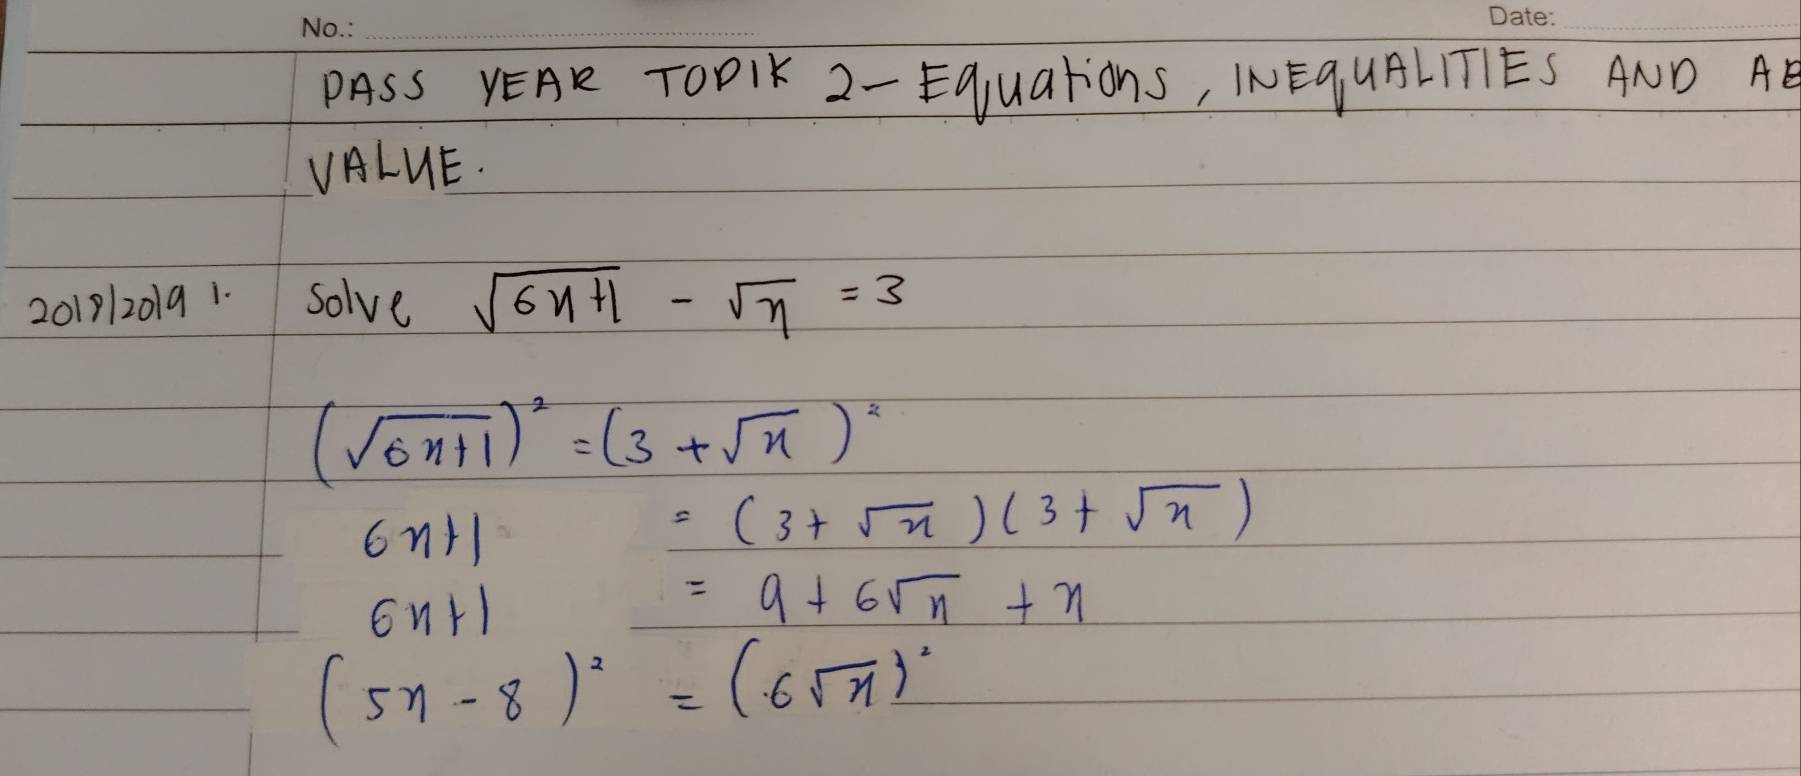 No.: Date:
PASS YEAR TOPIK 2 - Equations, INEQUALITIES AND AB
VALUE.
2018/2019 1. Solve √(6x+1) - √x = 3
(√(6x+1))² = (3 + √x)²
6x+1 = (3 + √x)(3 + √x)
6x+1 = 9 + 6√x + x
(5x - 8)² = (6√x)²